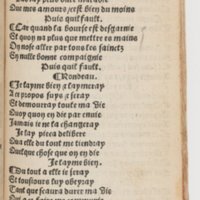 Que mes amours / cest bien du moins
Puis quil fault.
Car quant la bourse est desgarnie
Et quon na plus que mettre es mains
On nose aller par tous les sainctz
En nulle bonne compaignie
Puis quil fault.
Rondeau.
Je layme bien & laymeray
A ce propos suys & seray
Et demouray toute ma vie
Quoy quon en die par enuie
Jamais ie ne la changeray
Je lay prica delibere
Que elle du tout me tiendray
Quelque chose que on en die
Je layme bien.
Du tout a elle ie seray
Et tousiours luy obeyray
Tant que scaura durer ma vie